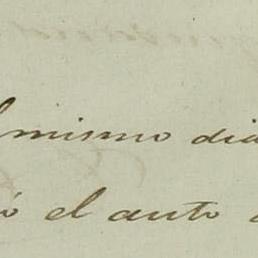 l mismo dia
ó el auto